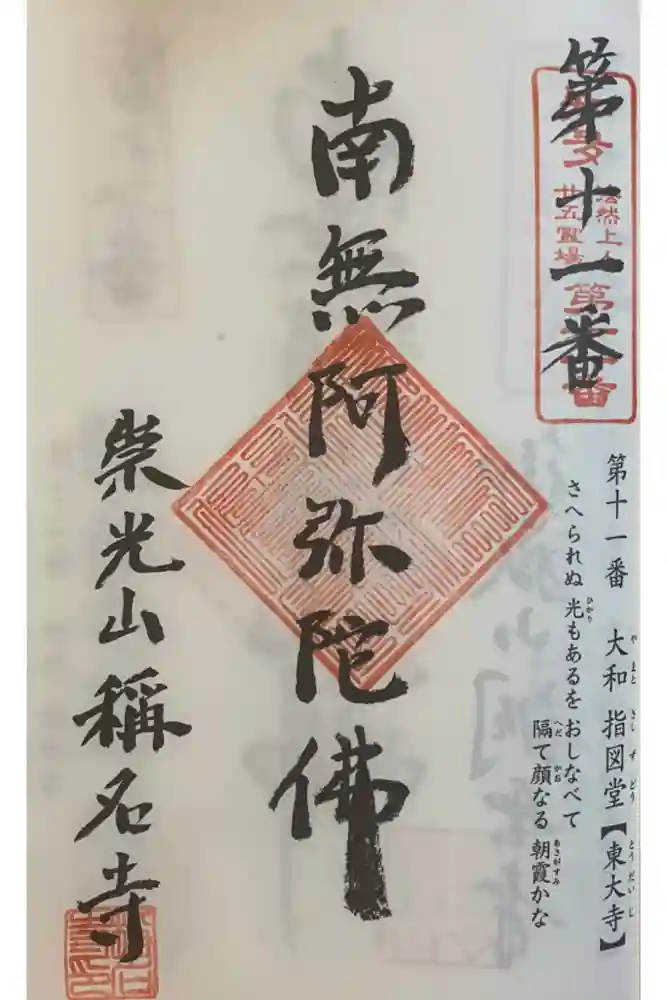 第十一番
法然上人
廿五霊場
第十一番 大和 指図堂【東大寺】
さへられぬ 光もあるを おしなべて
隔て顔なる 朝霞かな
南無阿弥陀佛
崇光山稱名寺